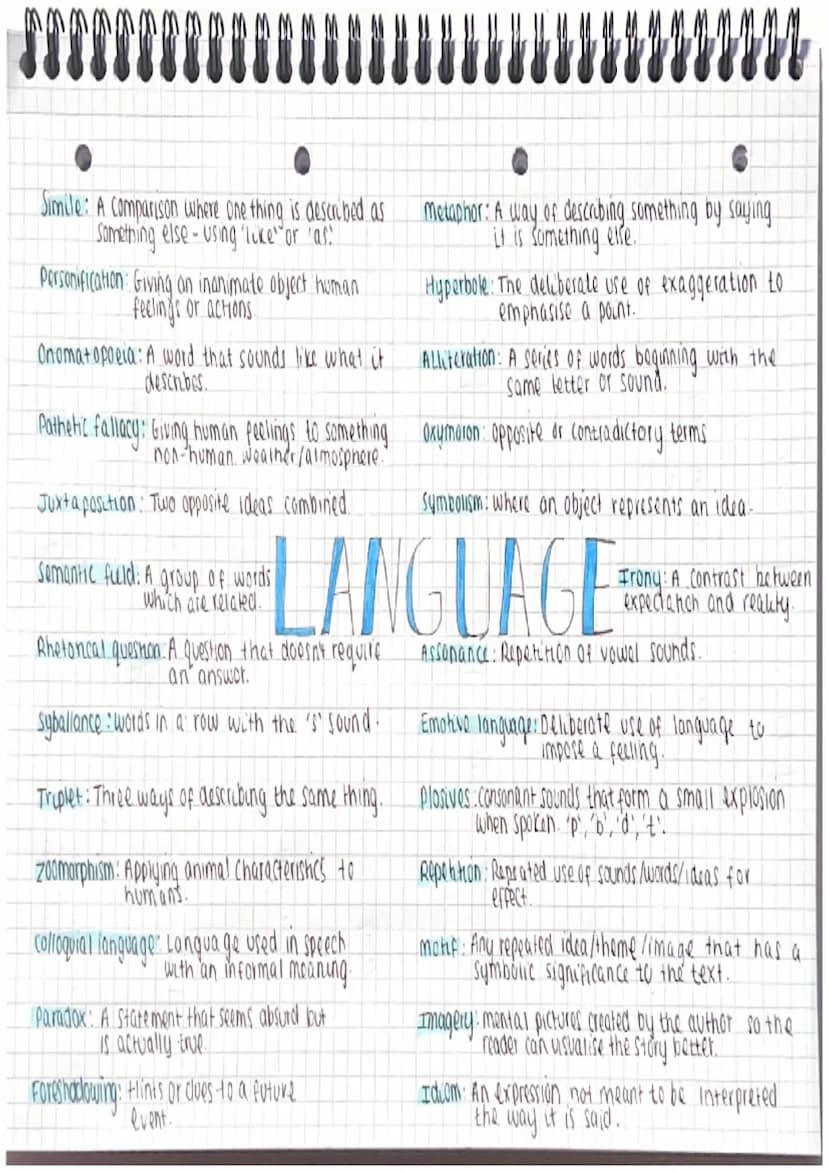 Simile: A comparison where one thing is described as
something else - using 'like' or 'as'.
Personification: Giving an inanimate object human
feelings or actions
Onomatopoeia: A word that sounds like what it
describes.
Pathetic fallacy: Giving human feelings to something
non-human. weather/atmosphere.
Juxtaposition: Two opposite ideas combined.
Semantic field: A group of words
which are related.
LANGUAGE
Rhetorical question: A question that doesnt require
an answer.
Syballance: words in a row with the 's' sound.
Triplet: Three ways of describing the same thing.
Zoomorphism: Applying animal characteristics to
humans.
Colloquial language: Language used in speech
with an informal meaning.
Paradox: A statement that seems absurd but
is actually true.
Foreshadowing: Hints or clues to a future
event.
Metaphor: A way of describing something by saying
it is something else.
Hyperbole: The deliberate use of exaggeration to
emphasise a point.
Alliteration: A series of words beginning with the
same letter or sound.
Oxymoron: opposite or contradictory terms
Symbolism: where an object represents an idea.
Irony: A contrast between
expectation and reality.
Assonance: Repetition of vowel sounds.
Emotive language: Deliberate use of language to
impose a feeling.
Plosives: consonant sounds that form a small explosion
when spoken. 'p', 'b', 'd', 't'.
Repetition: Repeated use of sounds/words/ideas for
effect.
Motif: Any repeated idea/theme/image that has a
symbolic significance to the text.
Imagery: mental pictures created by the author so the
reader can visualise the story better.
Idiom: An expression not meant to be interpreted
the way it is said.